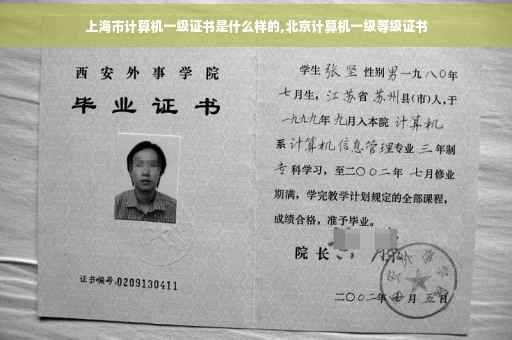 上海市计算机一级证书是什么样的,北京计算机一级等级证书
西安外事学院
毕业证书
证书编号:0209130411
学生 张坚 性别 男 一九八〇年
七月生, 江苏省 苏州县(市)人,于
一九九九年 九月入本院 计算机
系 计算机信息管理 专业 三 年制
专科学习,至二〇〇二年 七月修业
期满,学完教学计划规定的全部课程,
成绩合格,准予毕业。
院长
二〇〇二年 七月 五日